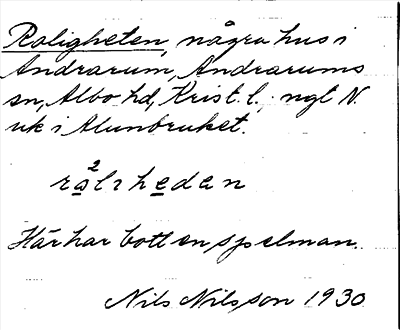 Raligheten, några hus i
Andrarum, Andrarums
sn, Albo hd, Krist. l.; ngt N.
uk i Alunbruket.
ra²lrhedan
Här har bott en spelman.
Nils Nilsson 1930